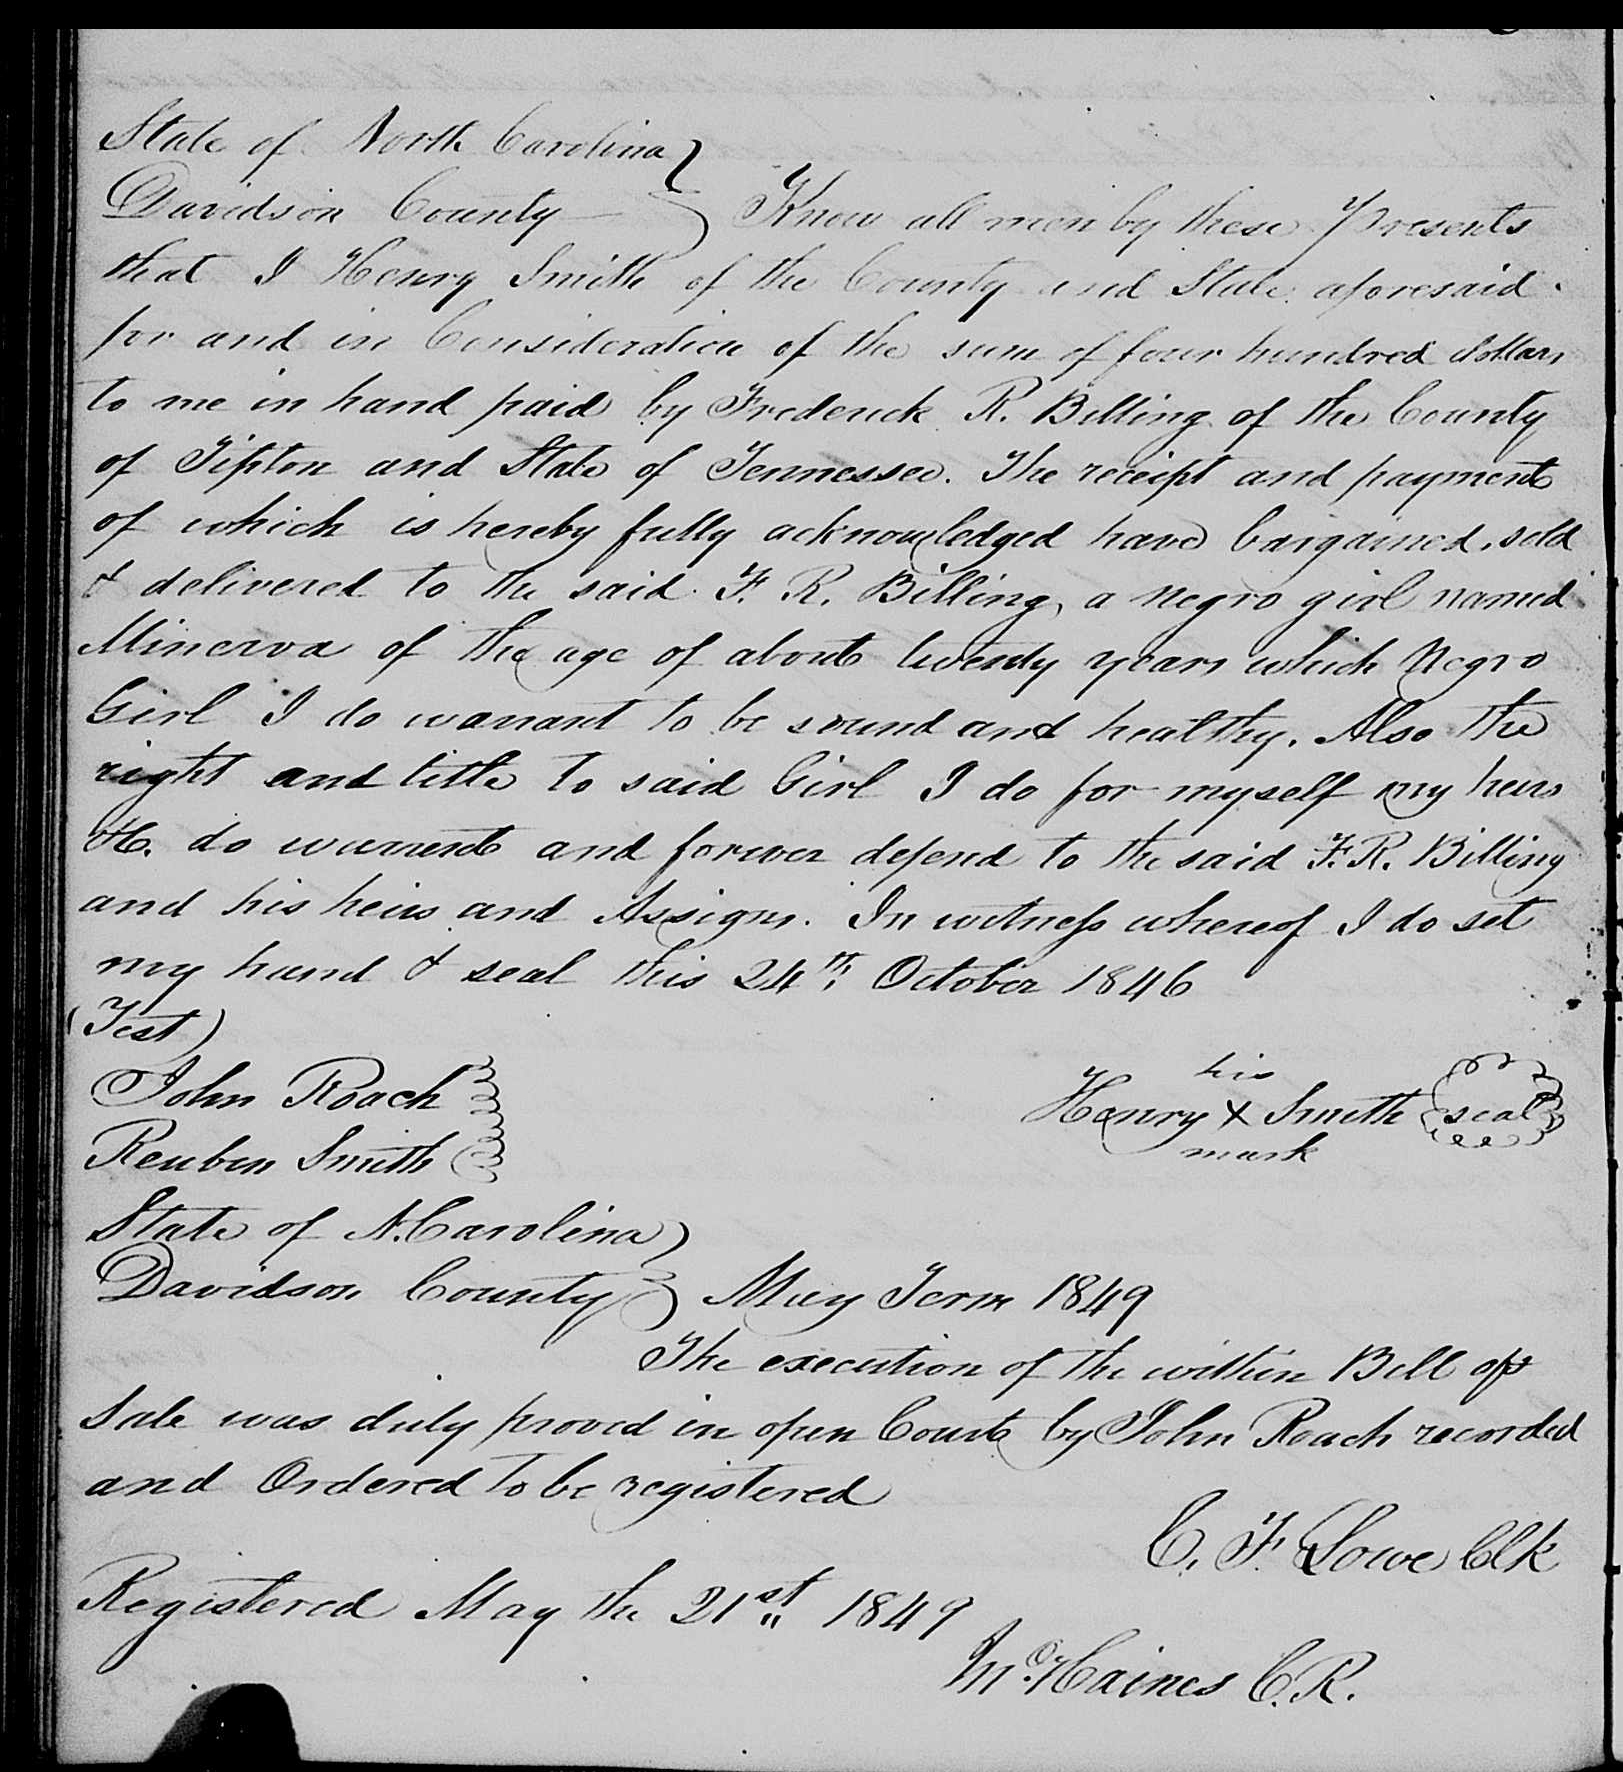 State of North Carolina
Davidson County Know all men by these Presents
that I Henry Smith of the County and State aforesaid
for and in Consideration of the sum of four hundred dollars
to me in hand paid by Frederick R. Billing of the County
of Tipton and State of Tennessee. The receipt and payment
of which is hereby fully acknowledged have bargained, sold
& delivered to the said F. R. Billing, a negro girl named
Minerva of the age of about twenty years which Negro
Girl I do warrant to be sound and healthy. Also the
right and title to said Girl I do for myself my heirs
&c. do warrent and forever defend to the said F. R. Billing
and his heirs and Assigns. In witness whereof I do set
my hand & seal this 24th, October 1846
(Test)
his
John Roach Henry X Smith seal
Reuben Smith mark
State of N. Carolina
Davidson County May Term 1849
The execution of the within Bill of
Sale was duly proved in open Court by John Roach recorded
and Ordered to be registered
C. F. Lowe Clk
Registered May the 21st 1849
Haines C. R.